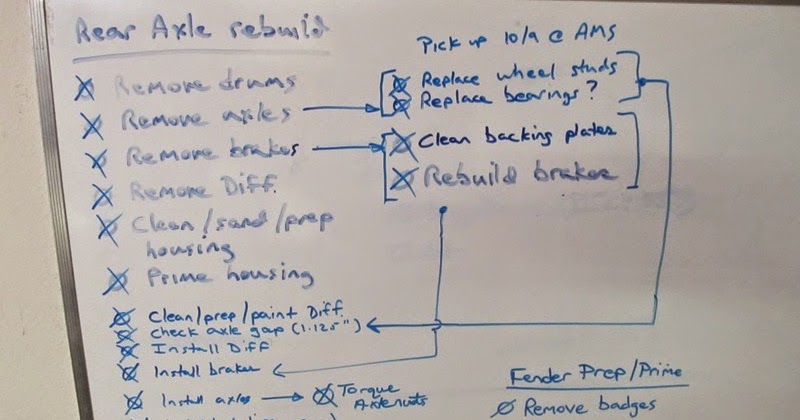 Rear Axle rebuild
Remove drums
Remove axles
Remove brakes
Remove Diff.
Clean/sand/prep
housing
Prime housing
Clean/prep/paint Diff.
Check axle gap (1.125")
Install Diff
Install brakes
Install axles
Torque
Axle nuts
Pick up 10/9 @ AMS
Replace wheel studs
Replace bearings?
Clean backing plates
Rebuild brakes
Fender Prep/Prime
Remove badges